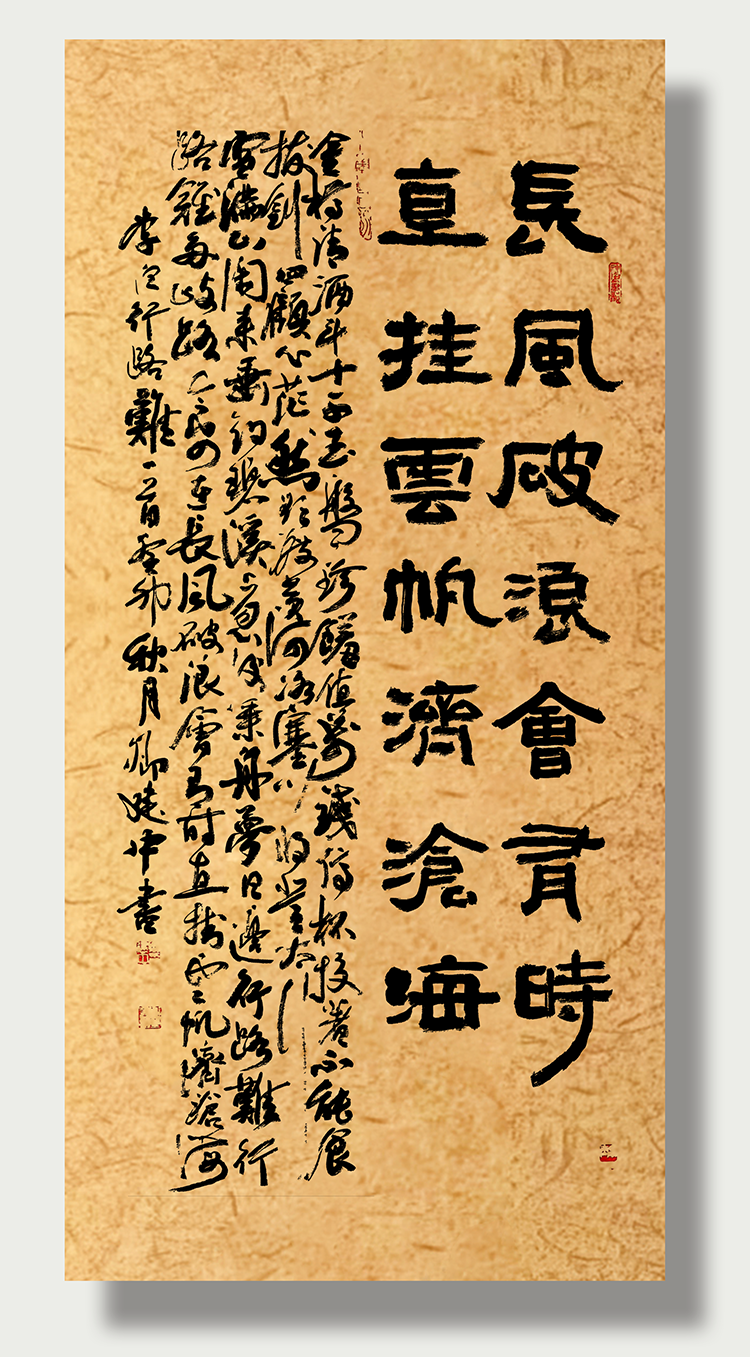 長風破浪會有時
直挂雲帆濟滄海
金樽清酒斗十千玉盤珍饈值萬錢停杯投箸不能食
拔劍四顧心茫然欲渡黃河冰塞川將登太行
雪滿山閑來垂釣碧溪上忽復乘舟夢日邊行路難行
路難多岐路今安在長風破浪會有時直掛雲帆濟滄海
李白行路難一首癸卯秋月卿建中書